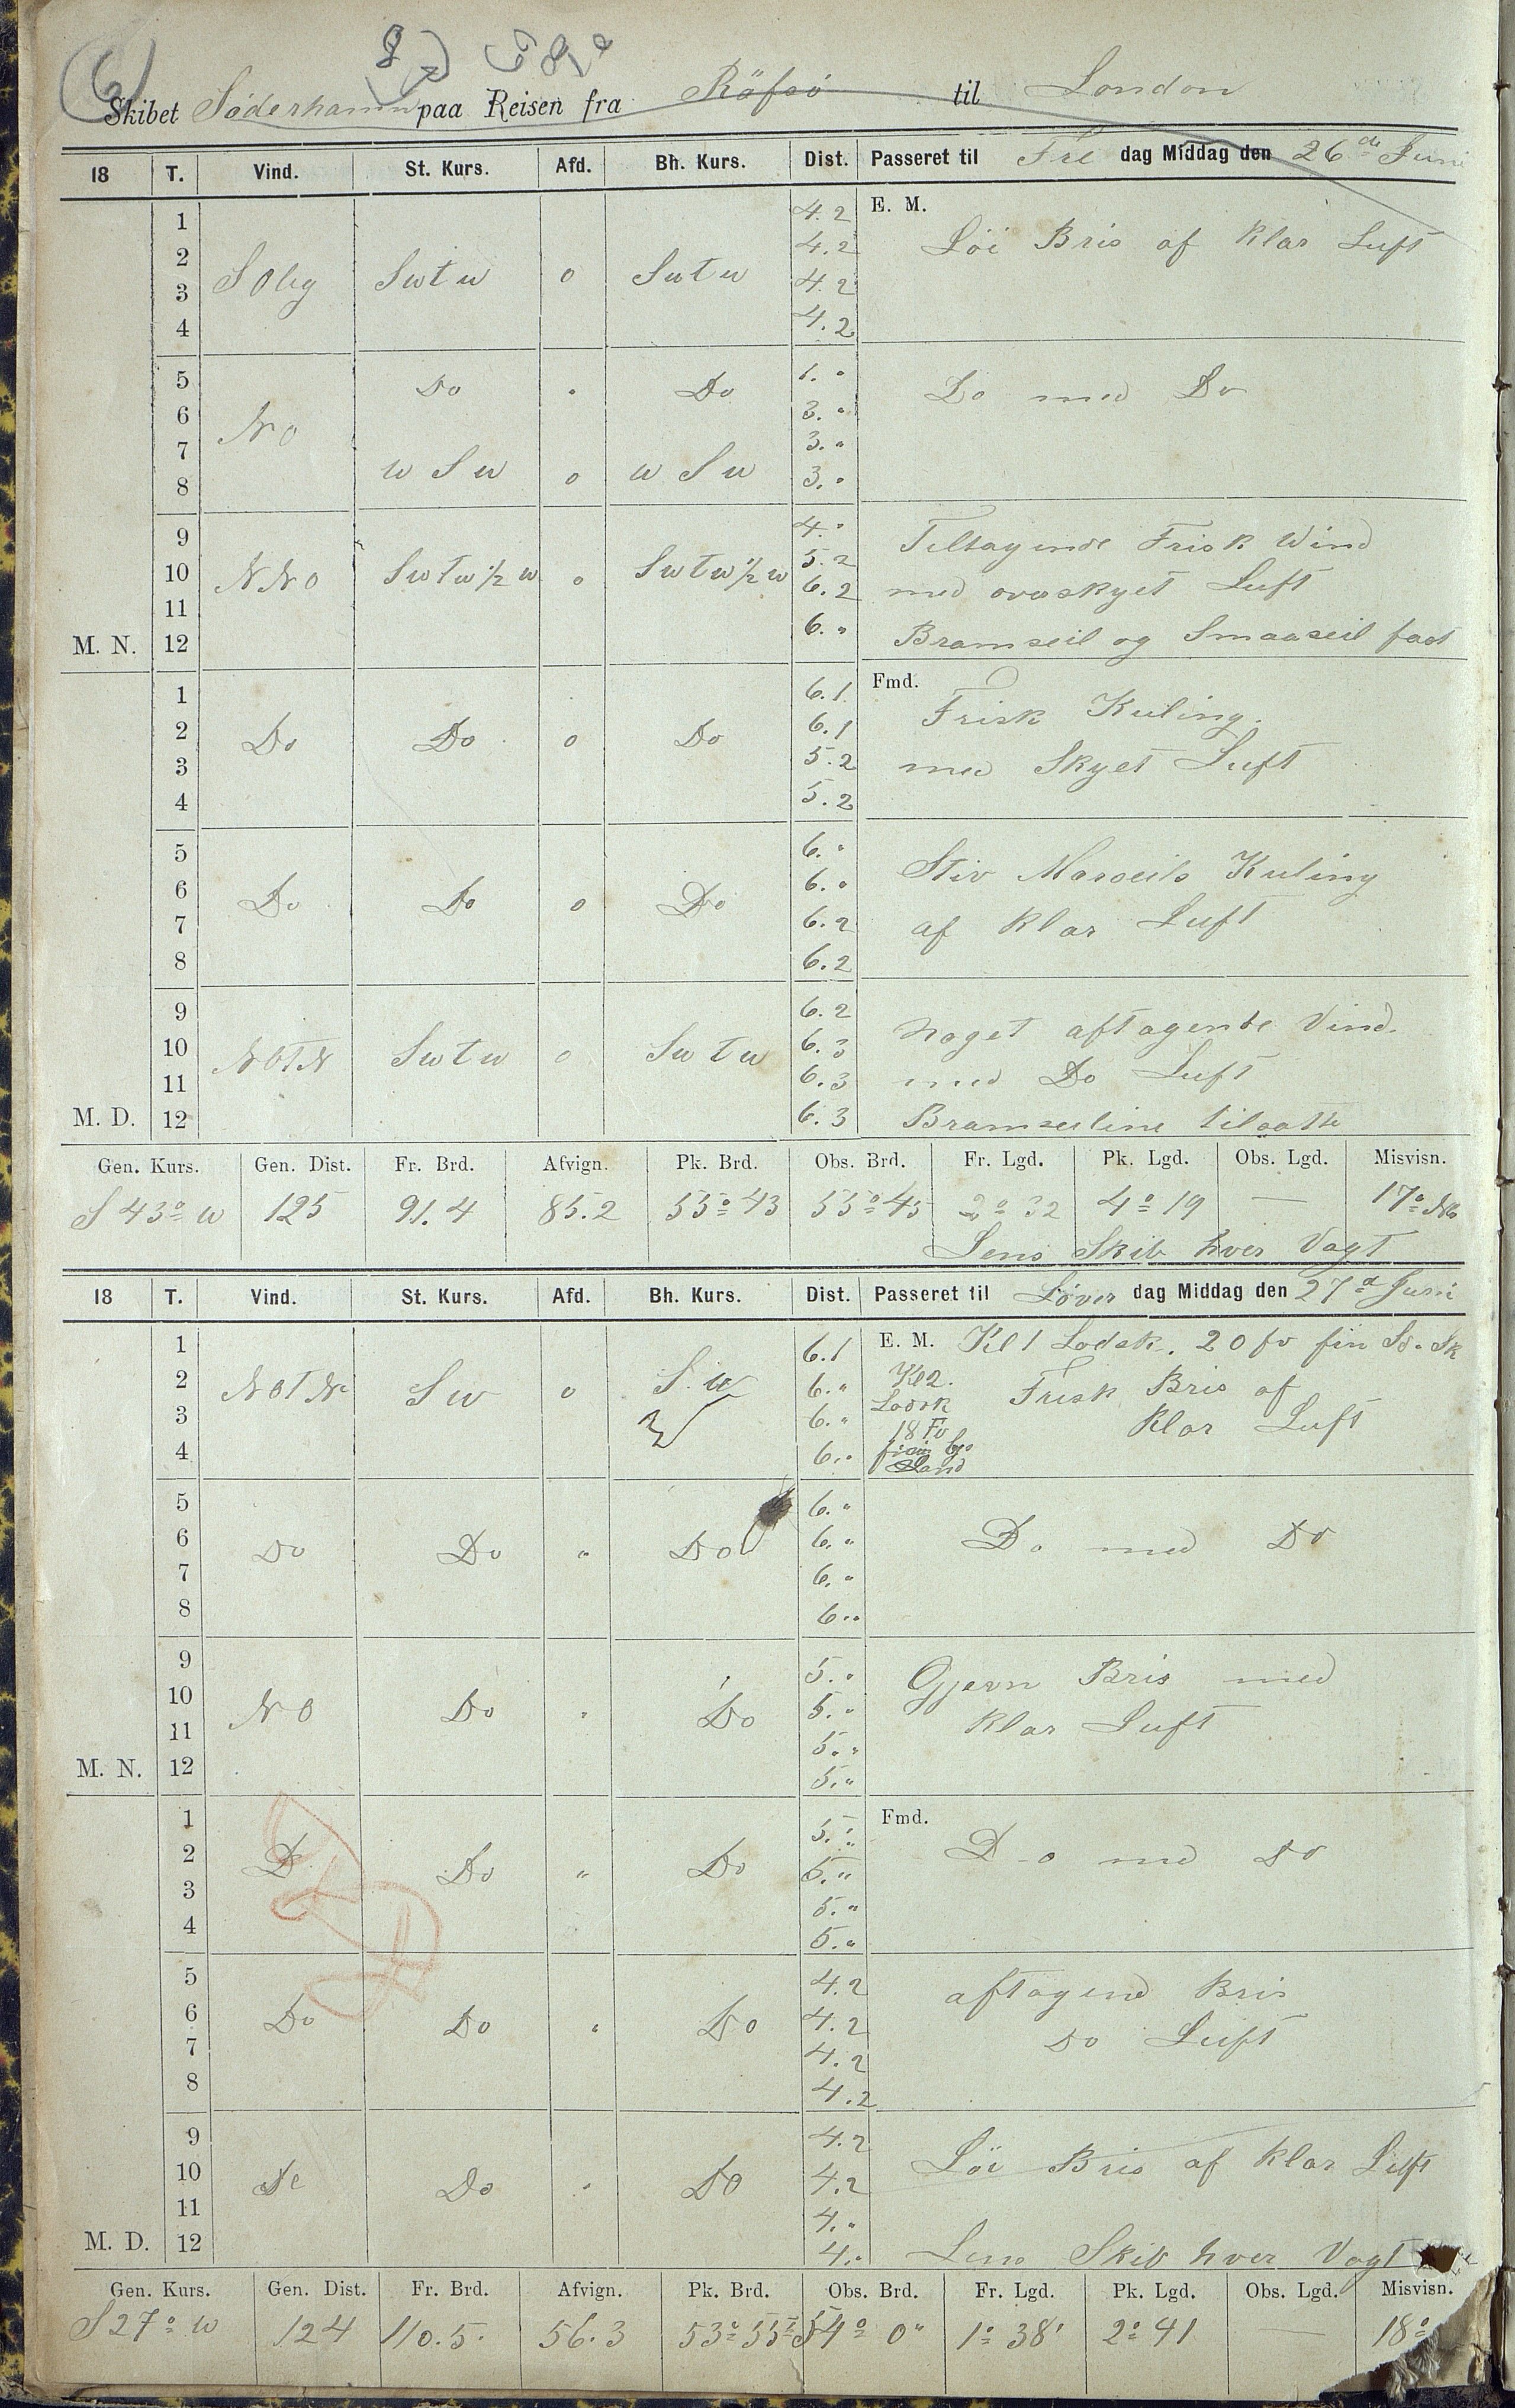 Skibet Söderhamn paa Reisen fra Räfsö til London
18 T. Vind. St. Kurs. Afd. Bh. Kurs. Dist. Passeret til Fre dag Middag den 26de Juni
1 4.2 E. M.
2 4.2 Löi Bris af klar Luft
3 SOlig SwTw 0 SwTw 4.2
4 4.2
5 Do " Do 1. "
6 NO 3. " Do med Do
7 3. "
8 W S W 0 W S W 3. "
9 4. " Tiltagende Frisk Wind
10 NNO SwTw ½ w 0 SwTw ½ w 5.2 med overskyet Luft
11 6.2
M. N. 12 6. " Bramseil og Smaaseil fast
1 6.1 Fmd. Frisk Kuling.
2 Do Do 0 Do 6.1
3 5.2 med Skyet Luft
4 5.2
5 6. " Stiv Merseils Kuling
6 Do Do 0 Do 6. "
7 6.2 af klar Luft
8 6.2
9 6.2 noget aftagende Vind.
10 NOTN SwTw 0 SwTw 6.3
11 6.3 med Do Luft
M. D. 12 6.3 Bramseilene tilsatte
Gen. Kurs. Gen. Dist. Fr. Brd. Afvign. Pk. Brd. Obs. Brd. Fr. Lgd. Pk. Lgd. Obs. Lgd. Misvisn.
S 43° W 125 91.4 85.2 55° 43 55° 45 2° 32 4° 19 — 17°
Lens Skib hver Vagt
18 T. Vind. St. Kurs. Afd. Bh. Kurs. Dist. Passeret til Löver dag Middag den 27d Juni
1 6.1 E. M. Kl 1 Lodsk. 20 fv fin
2 NOTN SW 0 S.W 6. " Kl 2. Frisk Bris af
3 6. " Lodsk 18 Fv klar Luft
4 6. " Sand
5 6. "
6 Do Do " Do 6. " Do med Do
7 6. "
8 6. "
9 5. " Gjevn Bris med
10 NO Do " Do 5. "
11 5. " klar Luft
M. N. 12 5. "
1 5. " Fmd.
2 D Do " Do 5. " Do med Do
3 5. "
4 5. "
5 4.2 aftagend Bris
6 Do Do " Do 4.2
7 4.2 Do Luft
8 4.2
9 4.2 Löi Bris af klar Luft
10 Do Do " Do 4.2
11 4. "
M. D. 12 4. " Lens Skib hver Vagt
Gen. Kurs. Gen. Dist. Fr. Brd. Afvign. Pk. Brd. Obs. Brd. Fr. Lgd. Pk. Lgd. Obs. Lgd. Misvisn.
S 27° W 124 110.5. 56.3 53° 55 54° 0" 1° 38' 2° 41 — 18°